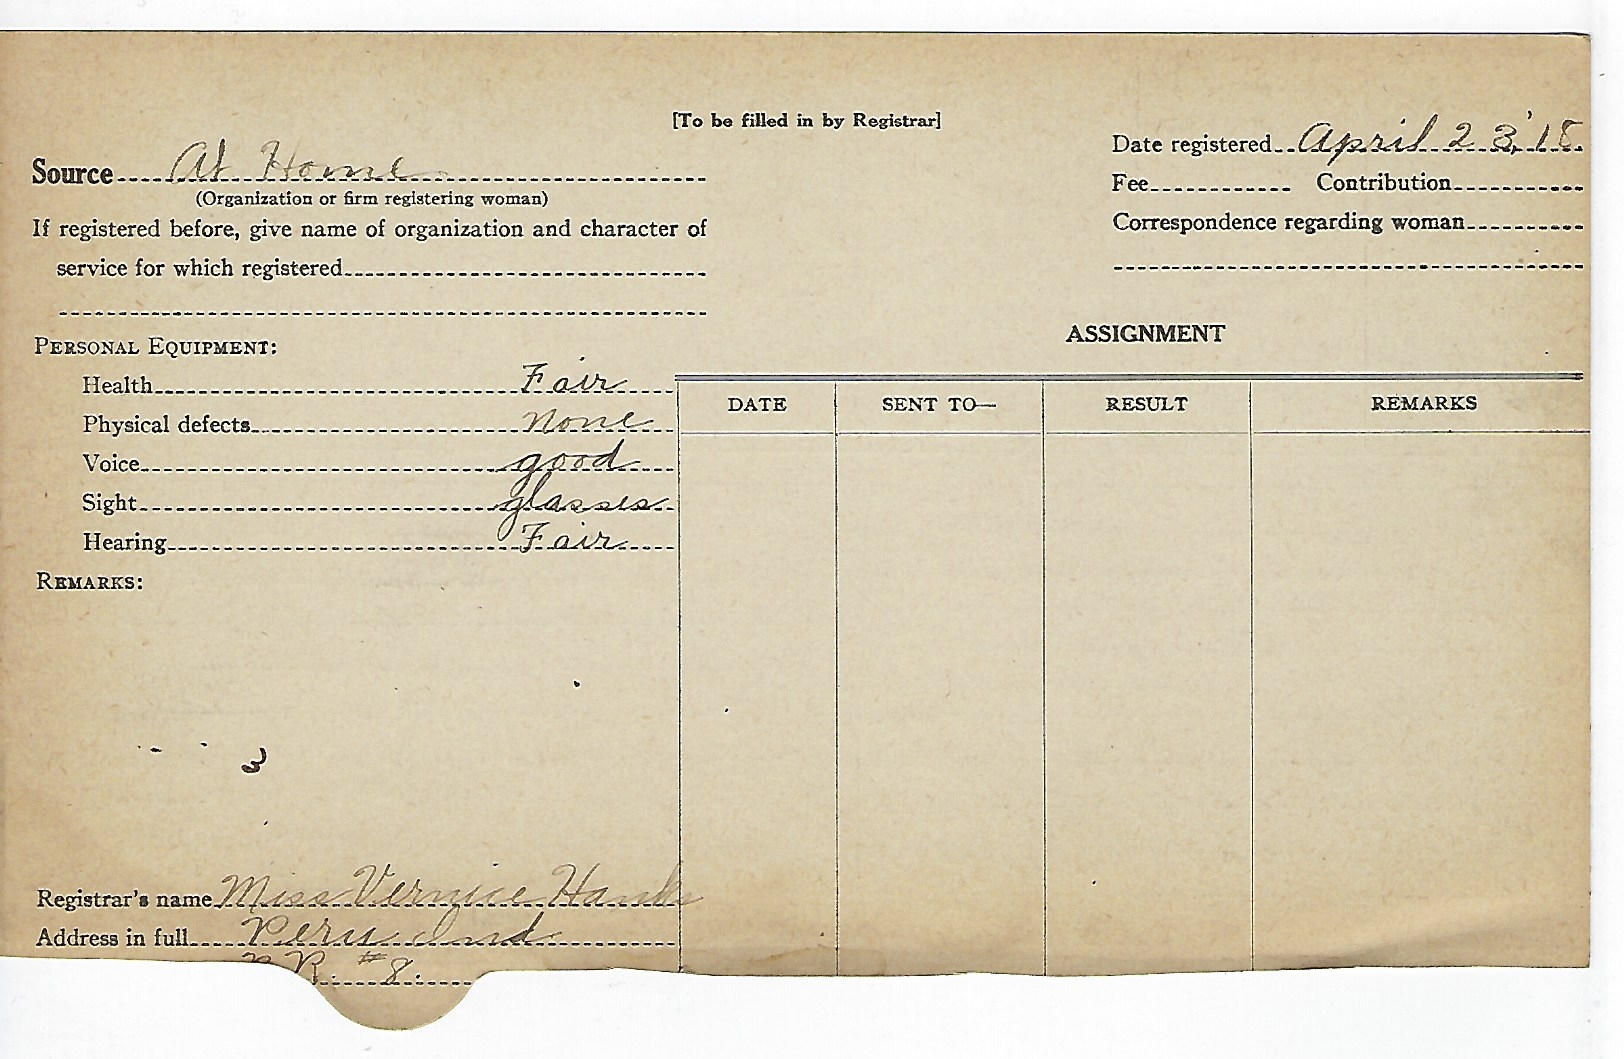 [To be filled in by Registrar]
Source At Home
(Organization or firm registering woman)
If registered before, give name of organization and character of
service for which registered
Date registered April 23,'18.
Fee Contribution
Correspondence regarding woman
PERSONAL EQUIPMENT:
Health Fair
Physical defects None
Voice good
Sight glasses
Hearing Fair
REMARKS:
3
ASSIGNMENT
DATE SENT TO— RESULT REMARKS
Registrar's name Miss Vernice
Address in full Peru Ind
R. #8.